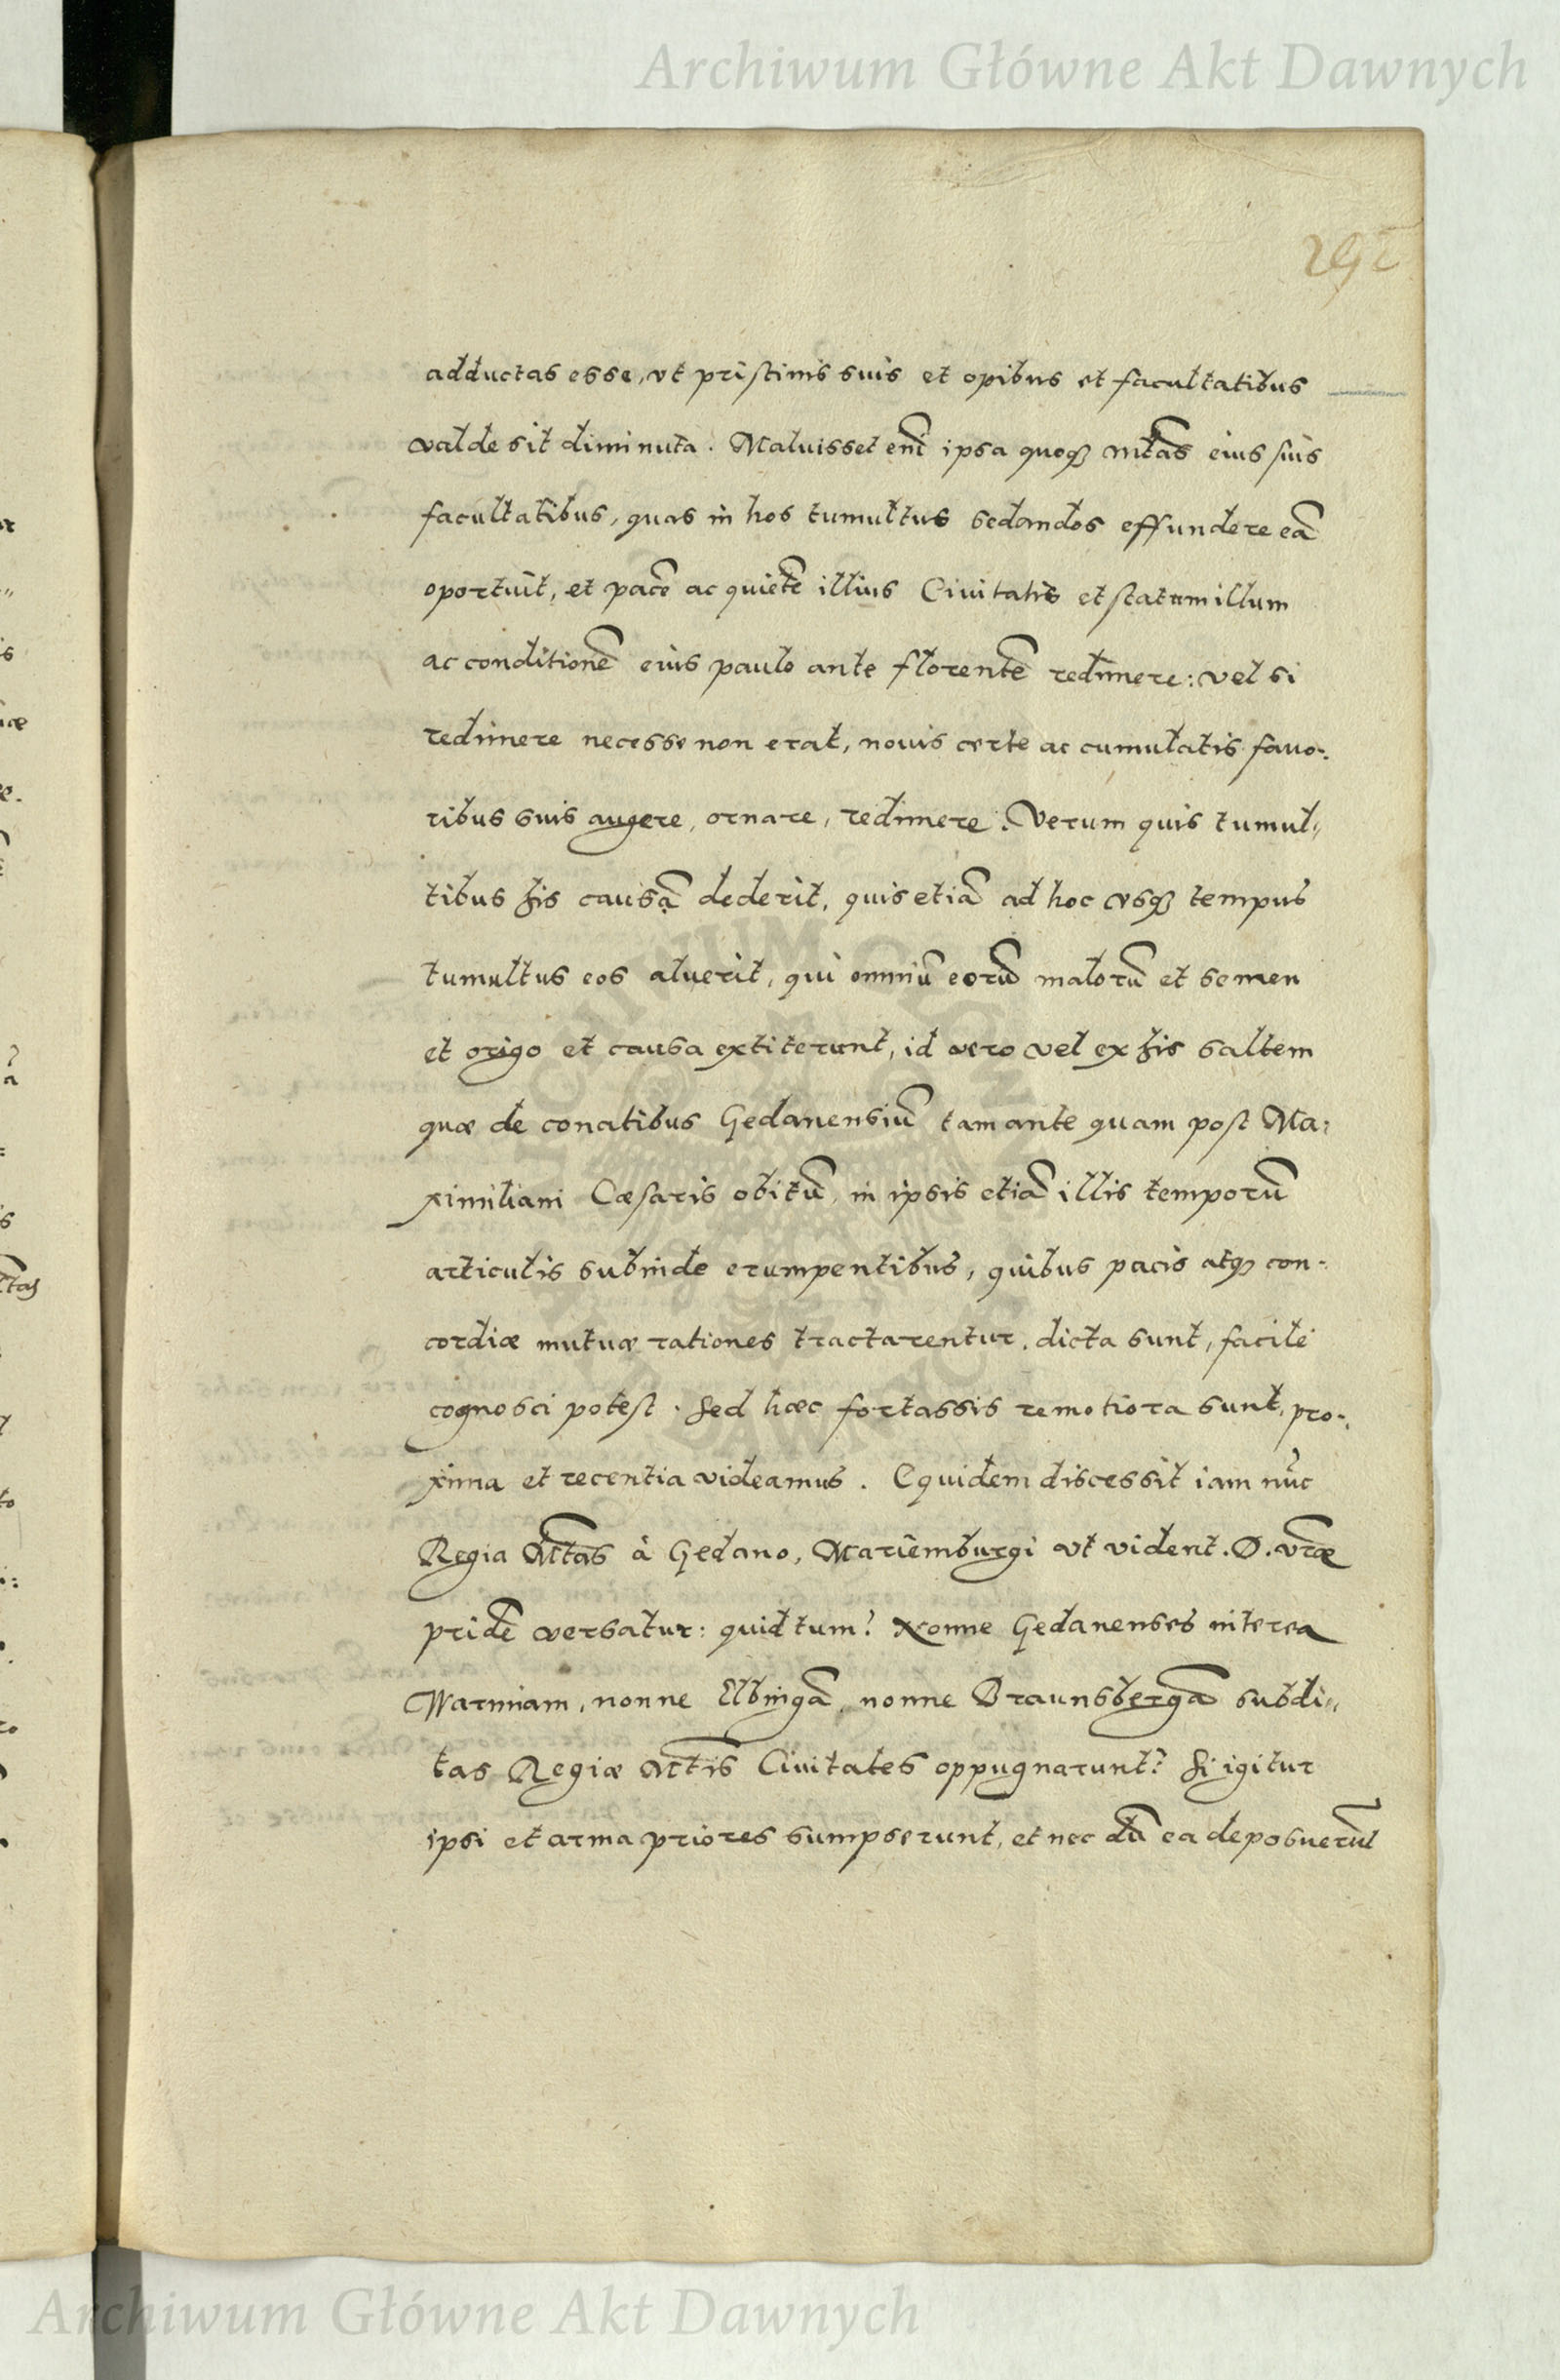 Archiwum Główne Akt Dawnych
295
adductas esse, vt pristinis suis et opibus et facultatibus
valde sit diminuta. Maluisset enī ipsa quoq3 Mtas eius suis
facultatibus, quas in hos tumultus sedandos effundere eā
oportuit, et pacē ac quietē illius Ciuitatis et statum illum
ac conditionē eius paulo ante florentē redimere: vel si
redimere necesse non erat, nouis certe ac cumulatis fauo-
ribus suis augere, ornare, redimere. Verum quis tumul-
tibus his causā dederit, quis etiā ad hoc vsq3 tempus
tumultus eos aluerit, qui omniū eorū malorū et semen
et origo et causa extiterunt, id vero vel ex his saltem
quæ de conatibus Gedanensiū tam ante quam post Ma-
ximiliani Cæsaris obitū, in ipsis etiā illis temporū
articulis subinde erumpentibus, quibus pacis atq3 con-
cordiæ mutuæ rationes tractarentur, dicta sunt, facile
cognosci potest. Sed hæc fortassis remotiora sunt, pro-
xima et recentia videamus. Equidem discessit iam nūc
Regia Mtas à Gedano, Mariemburgi vt vident. D. vræ
pridē versatur: quid tum? Nonne Gedanenses interea
Warmiam, nonne Elbingā, nonne Braunsbergā subdi-
tas Regiæ Mtis Ciuitates oppugnarunt? Si igitur
ipsi et arma priores sumpserunt, et nec dū ea deposuerūt
Archiwum Główne Akt Dawnych